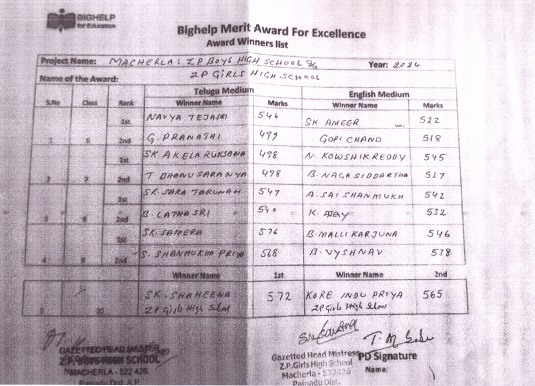 BIGHELP
for Education
Bighelp Merit Award For Excellence
Award Winners list
Project Name: MACHERLA: Z.P BOYS HIGH SCHOOL &
Year: 2024
Z P GIRLS HIGH SCHOOL
Name of the Award:
Telugu Medium English Medium
S.No Class Rank Winner Name Marks Winner Name Marks
1st NAVYA TEJASRI 546 SK AMEER 522
6 2nd G. PRANATHI 499 GOPI CHAND 518
1st SK AKELA RUKSANA 498 N. KOWSHIK REDDY 545
2 7 2nd T. BHANU SARANYA 498 B. NAGA SIDDARTHA 527
1st SK. SARA TARUNAH 547 A. SAI SHANMUKH 542
3 8 2nd B. LATHA SRI 540 K. AJAY 532
1st SK. SAMERA 576 B. MALLI KARJUNA 546
4 9 2nd S. SHANMUKHA PRIYA 568 B. VYSHNAV 538
Winner Name 1st Winner Name 2nd
10 SK. SHAHEENA 572 KORE INDU PRIYA 565
Z P Girls High School Z P Girls High School
GAZETTED HEAD MASTER
Z.P. BOYS HIGH SCHOOL
MACHERLA - 522 426.
Palnadu Dist. A.P
Gazetted Head Mistress
Z.P.Girls High School
Macherla - 522426
Palnadu Dist.
PD Signature
Name: